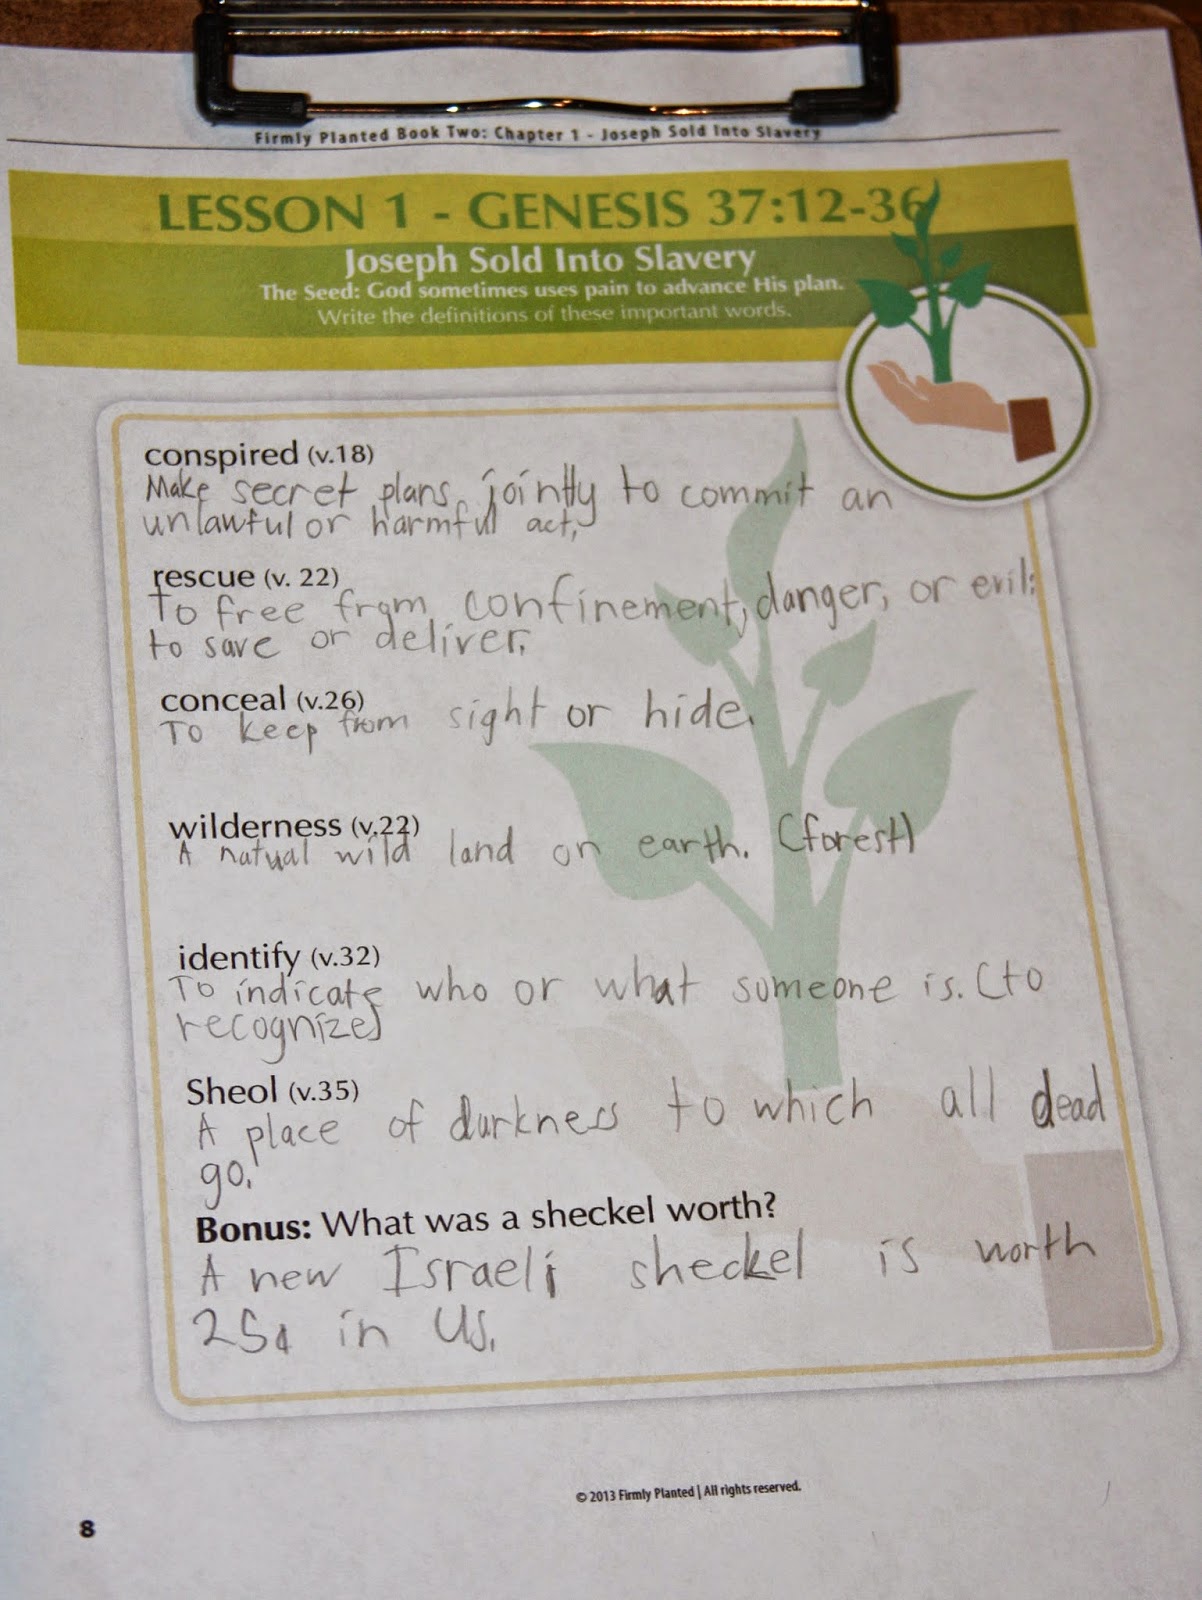 Firmly Planted Book Two: Chapter 1 - Joseph Sold Into Slavery
LESSON 1 - GENESIS 37:12-36
Joseph Sold Into Slavery
The Seed: God sometimes uses pain to advance His plan.
Write the definitions of these important words.
conspired (v.18)
Make secret plans jointly to commit an
unlawful or harmful act.
rescue (v. 22)
To free from confinement, danger, or evil:
to save or deliver.
conceal (v.26)
To keep from sight or hide.
wilderness (v.22)
A natual wild land on earth. (forest)
identify (v.32)
To indicate who or what someone is. (to
recognize)
Sheol (v.35)
A place of darkness to which all dead
go.
Bonus: What was a sheckel worth?
A new Israeli sheckel is worth
25¢ in US.
© 2013 Firmly Planted | All rights reserved.
8